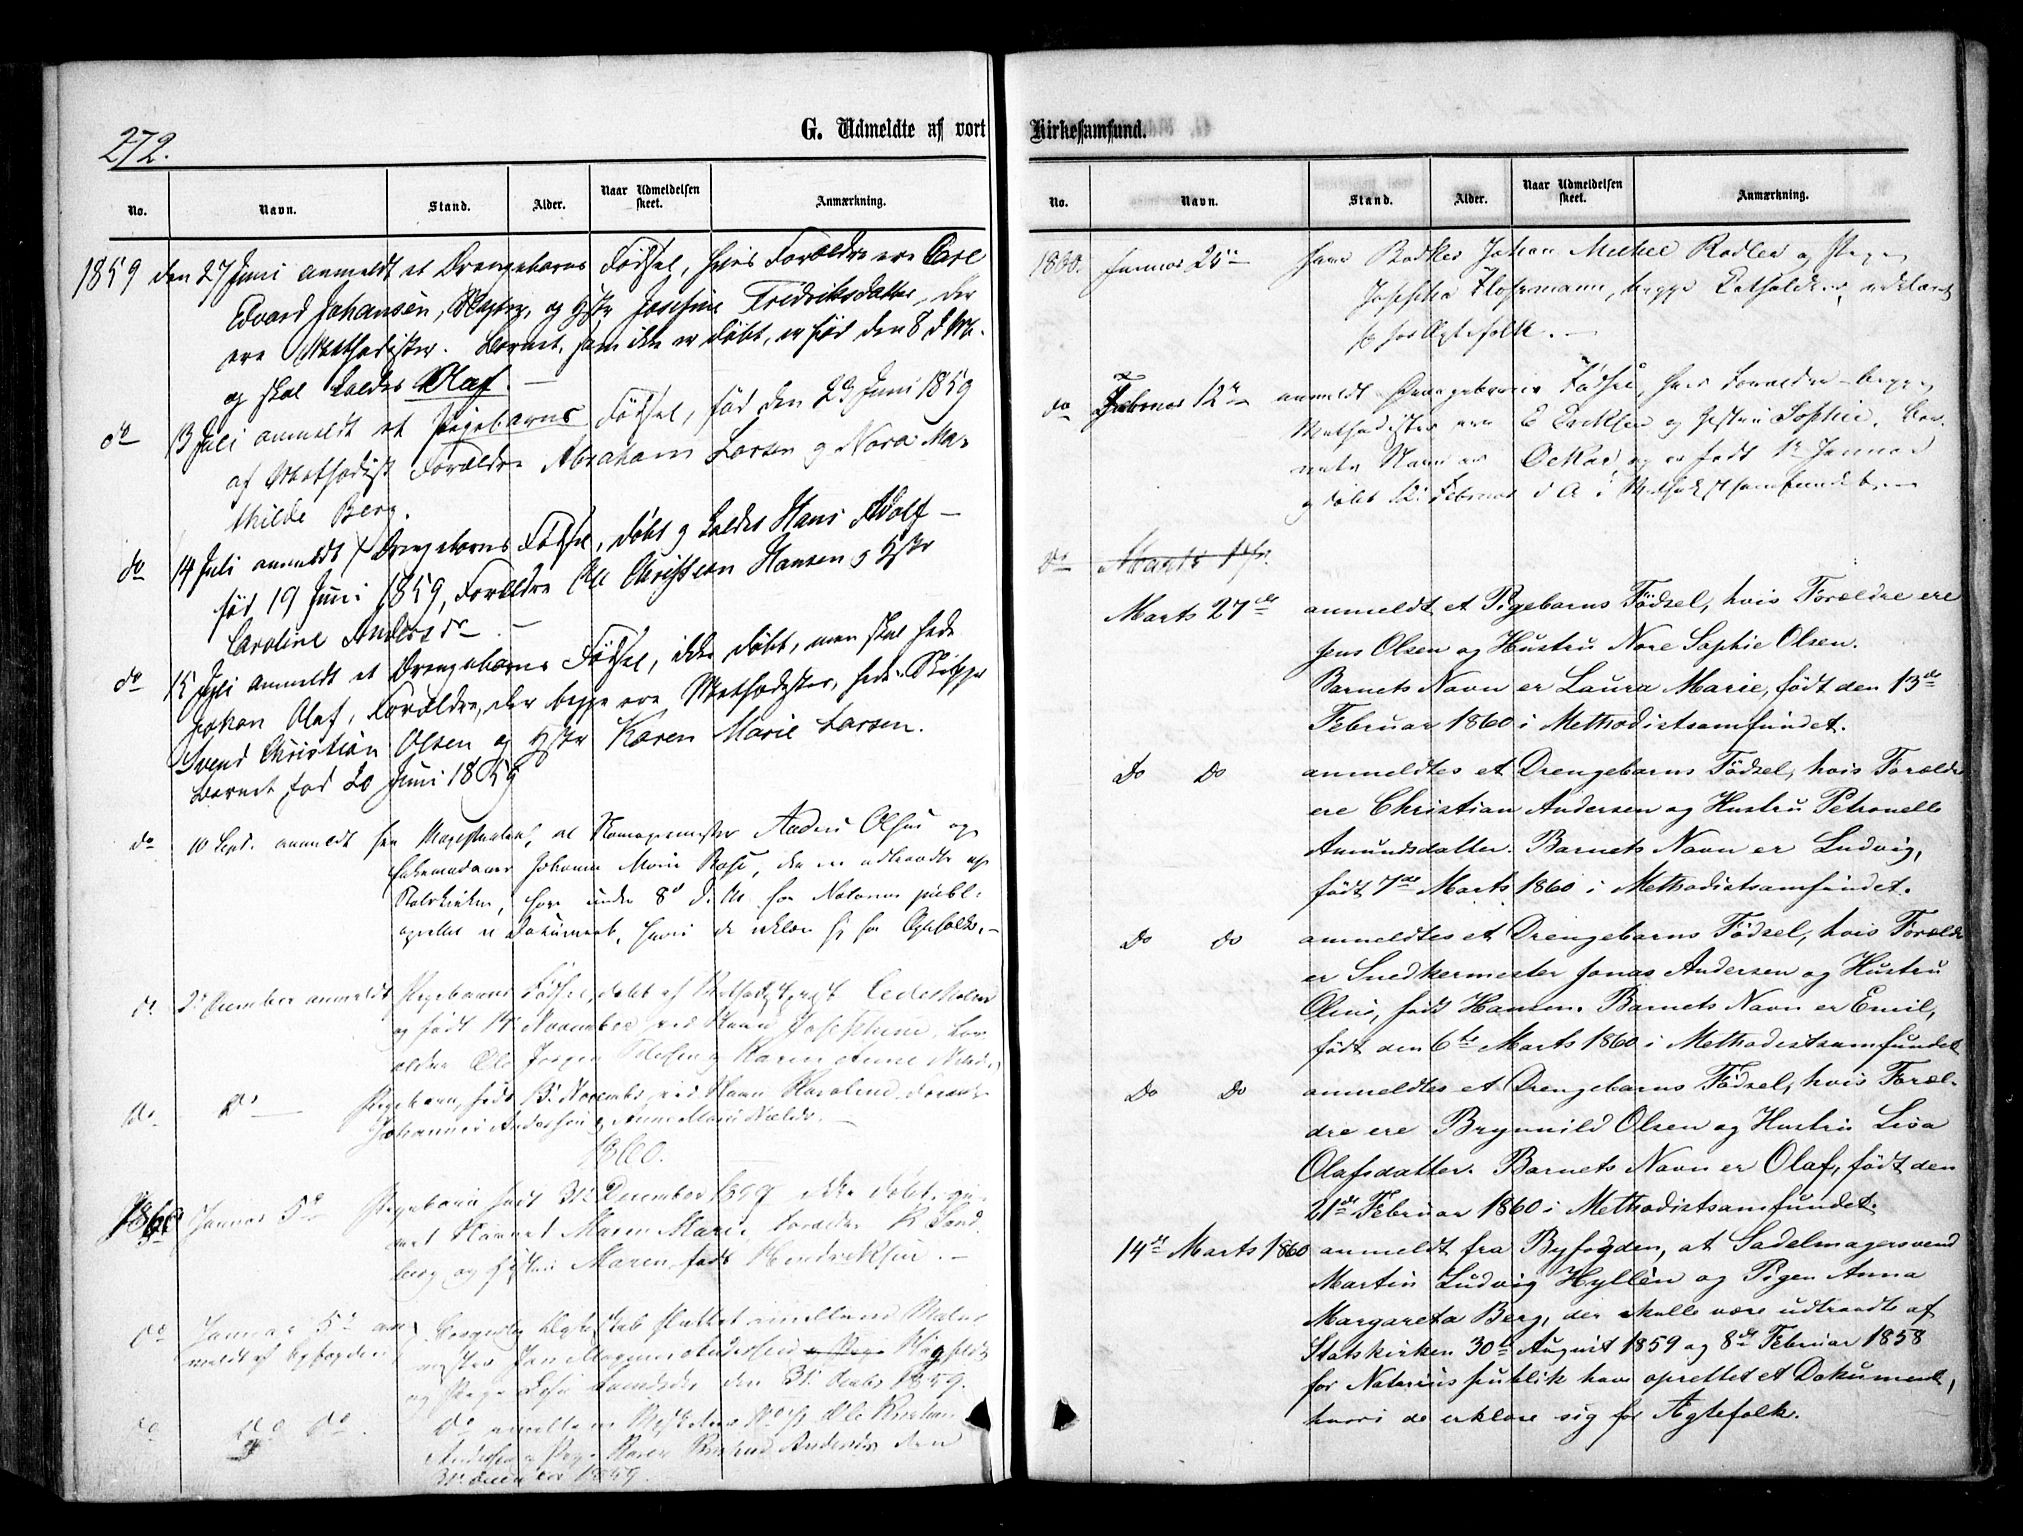 272.
G. Udmeldte af vort
No. Navn. Stand. Alder. Naar Udmeldelsen skeet. Anmærkning.
1859 den 27 Juni anmeldt et Drengebarns Fødsel, hvis Forældre ere Carl
Edvard Johansen, og Hstr Josefine Fredriksdatter, der
ere Methodister. Barnet, som ikke er døbt, er født den 8 d. M.
og skal kaldes Olaf.
do 13 Juli anmeldt et Pigebarns Fødsel, fød den 29 Juni 1859
af Methodist Forældre Abraham Larsen og Nora Ma-
thilde Berg.
do 14 Juli anmeldt Drengebarns Fødsel, døbt og kaldes Hans Adolf
fød 19 Juni 1859, Forældre Ole Christian Hansen og Hstr
Caroline Andersdr
do 15 Juli anmeldt et Drengebarns Fødsel, ikke døbt, men skal hede
Johan Olaf, Forældre, der begge ere Methodister, hede Skipper
Svend Christian Olsen og Hstr Karen Marie Larsen.
Barnet fød 20 Juni 1859
do 10 Sept. anmeldt fra Magistraten, at Skomagermester Anders Olsen og
Johanne Marie, der ere udtraadte af
Statskirken, have under 8d d. M. for Notarius publ.
oprettet et Dokument, hvori de erklære sig for Ægtefolk.
do 2 December anmeldt Pigebarns Fødsel, døbt af Methodistpræst Cederholm
og født November ved Navn Josephine, For-
ældre Ole Jørgen og Karen
do do Pigebarn, født 13 November ved Navn Karoline, Forældre
Johannes Andersen og Anne Marie
1860.
1860 Januar 5te Pigebarn født 31 December 1859 ikke døbt, gi-
vet Navnet Maren Marie. Forældre K. Sand-
berg og Hstru Maren født Hendriksen.
do Januar 5te an- Borgerlig Ægteskab sluttet imellem Maler-
meldt af Byfogden mester Jan Magnus
og Pige den 31 Decbr 1859.
do do do do imellem Ole Kristian
Andersen og Pige Karen Andersdr den
31 December 1859.
Kirkesamfund.
No. Navn. Stand. Alder. Naar Udmeldelsen skeet. Anmærkning.
1860. Januar 25de have Bødker Johan Michel Rodler og Pige
Josepha Hofsmann, begge Katholikker, erklæret
sig for Ægtefolk.
do Februar 12te anmeldt Drengebarns Fødsel, hvis Forældre begge
Methodister ere E Eriksen og Hustru Sophie. Bar-
nets Navn er Oskar, og er født 1 Januar
og døbt 12 Februar d A i Methodistsamfundet.
do Marts
Marts 27de anmeldt et Pigebarns Fødsel, hvis Forældre ere
Jens Olsen og Hustru Nore Sophie Olsen.
Barnets Navn er Laura Marie, født den 13de
Februar 1860 i Methodistsamfundet.
Do Do anmeldtes et Drengebarns Fødsel, hvis Forældre
ere Christian Andersen og Hustru Petronelle
Amundsdatter. Barnets Navn er Ludvig,
født 7de Marts 1860 i Methodistsamfundet.
Do Do anmeldtes et Drengebarns Fødsel, hvis Forældre
er Snedkermester Jonas Andersen og Hustru
Oline, født Hansen. Barnets Navn er Emil,
født den 6te Marts 1860 i Methodistsamfundet
Do Do anmeldtes et Drengebarns Fødsel, hvis Foræl-
dre ere Brynnild Olsen og Hustru Lisa
Olafsdatter. Barnets Navn er Olaf, født den
21de Februar 1860 i Methodistsamfundet.
14de Marts 1860 anmeldt fra Byfogden, at Sadelmagersvend
Martin Ludvig Hyllén og Pigen Anna
Margareta Berg, der skulle være udtraadte af
Statskirken 30te August 1859 og 8de Februar 1858
for Notarius publik have oprettet et Dokument,
hvori de erklære sig for Ægtefolk.